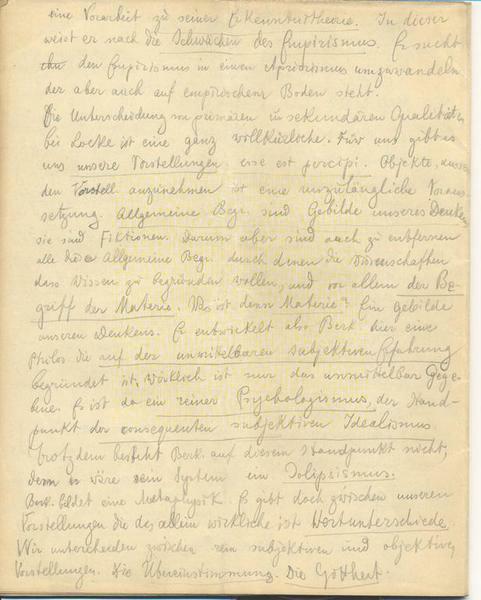 eine Vorarbeit zu seiner Erkenntnistheorie. In dieser
weist er nach die Schwächen des Empirismus. Er sucht
den Empirismus in einen Apriorismus umzuwandeln
der aber auch auf empirischem Boden steht.
Die Unterscheidung von primären u sekundären Qualitäten
bei Locke ist eine ganz willkürliche. Für uns gibt es
uns unsere Vorstellungen esse est percipi. Objekte, ausser
den Vorstell anzunehmen ist eine unzulängliche Voraus
setzung. Allgemeine Begr. sind Gebilde unseres Denkens
sie sind Fiktionen. Darum aber sind auch zu entfernen
alle die Allgemeine Begr. durch denen die Wissenschaften
dass Wissen zu begründen wollen, und vor allem der Be-
griff der Materie. Was ist denn Materie? Ein Gebilde
unseren Denkens. Er entwickelt also Berk. hier eine
Philos. die auf der unmittelbaren subjektiven Erfahrung
begründet ist, wirklich ist nur das unmittelbar Gege-
bene. Es ist da ein reiner Psychologismus, der Stand-
punkt der consequenten subjektiven Idealismus
trotzdem besteht Berk. auf diesem Standpunkt nicht,
denn es wäre sein System ein Solipsismus.
Berk. bildet eine Metaphysik. Es gibt doch zwischen unseren
Vorstellungen die des allein wirkliche ist Wertunterschiede
Wir unterscheiden zwischen rein subjektiven und objektiven
Vorstellungen. Die Übereinstimmung. Die Gottheit.